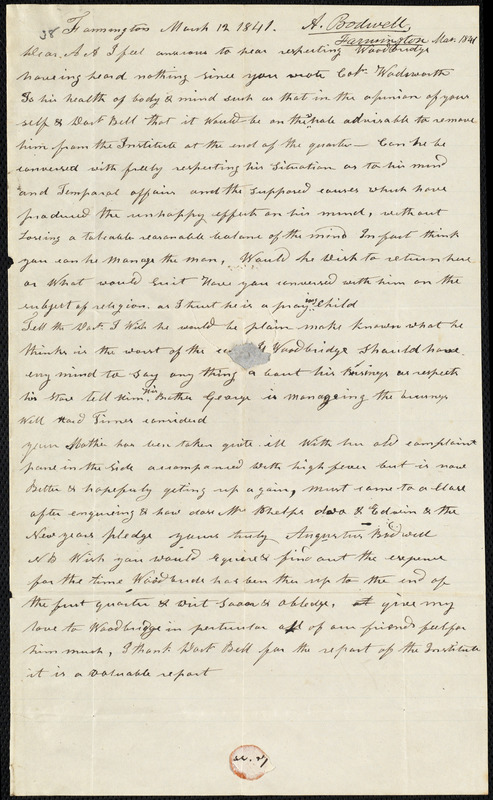 38 Farmington March 12 1841. A. Bodwell
Farmington Mar. 1841
Dear A A I feel anxious to hear respecting Woodbridge
haveing heard nothing since you wrote Cot. Wadsworth
Is his health of body & mind such as that in the opinion of your
self & Doct Bell that it Would be on the hole advisable to remove
him from the Institute at the end of the quarter— Can he be
conversed with freely respecting his Situation as to his mind
and Temporal affairs and the Supposed causes which have
produced the unhappy effects on his mind, without
Loseing a tolerable reasonable balance of the mind In fact think
you can he manage the man, Would he Wish to return here
or What would suit Have you conversed with him on the
subject of religion. as I trust he is a praying Child
Tell the Doct. I Wish he would be plain make known what he
thinks is the worst of the Woodbridge Should have
eny mind to say any thing about his Buisings as respects
his Store tell him his Brother George is manageing the buisnys
Well Hard Times considered
your Mother has ben taken quite ill With her old complaint
pane in the Side accompaned With high fever but is now
Better & hopefuly geting up again, must come to a Close
after enquiring & how does Mr Phelps doo & Edwin & the
New years pledge yours truly Augustus Bodwell
N B Wish you would & find out the expence
for the time Woodbridge has ben thre up to the end of
the first quarter & oblidge, give my
love to Woodbridge in perticular all of our friends feel for
him much, I thank Doct Bell for the report of the Institute
it is a valuable report